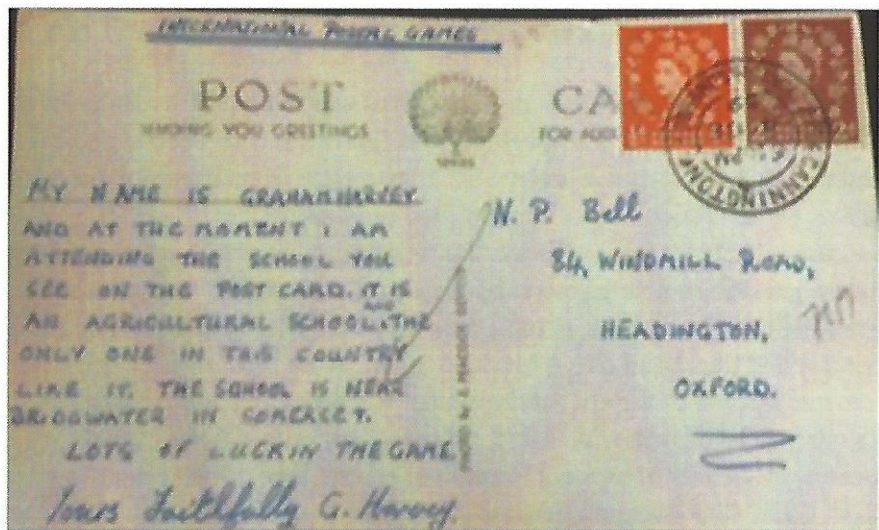 INTERNATIONAL POSTAL GAMES
POST CA
SENDING YOU GREETINGS
FOR ADD
CANNINGTON
PM
MY NAME IS GRAHAM HARVEY
AND AT THE MOMENT I AM
ATTENDING THE SCHOOL YOU
SEE ON THE POST CARD. IT IS
AN AGRICULTURAL SCHOOL, AND THE
ONLY ONE IN THIS COUNTRY
LIKE IT. THE SCHOOL IS NEAR
BRIDGWATER IN SOMERSET.
LOTS OF LUCK IN THE GAME
Yours Faithfully G. Harvey.
PHOTO by
N. P. Bell
84, WINDMILL ROAD,
HEADINGTON,
OXFORD.